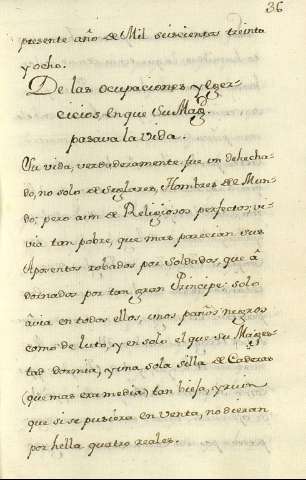 36
presente año de Mil seiscientos treinta
y ocho.
De las ocupaciones y Eger-
cicios, en que Su Mag.
pasava la vida.
Su vida, verdaderamente fue un dehecha-
do, no solo de seglares, Hombres de Mun-
do; pero aun de Religiosos perfectos; vi-
via tan pobre, que mas parecian sus
Aposentos robados por Soldados, que â
dornados por tan gran Principe: solo
avia en todos ellos, unos paños negros
como de luto, y en solo el que su Mages-
tad dormia, y una sola silla de Caderas
(que mas era media) tan bieja, y ruin
que si se pusiera en venta, no dieran
por hella quatro reales.